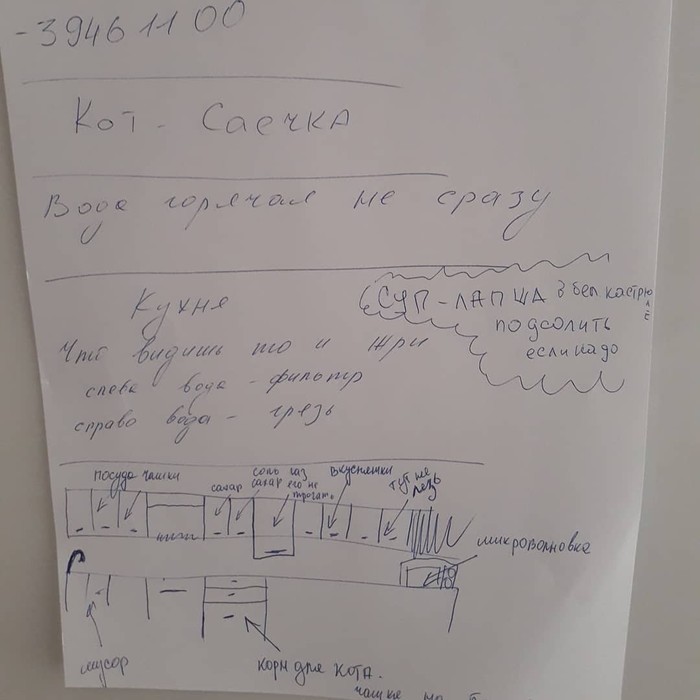 -3946 11 00
Кот - Саечка
Вода горячая не сразу
Кухня
СУП-ЛАПША в бел кастрюлё
подсолить
если надо
Что видишь то и жри
слева вода - фильтр
справо вода - грязь
посуда чашки
сахар
соль
сахар
газ
его не
трогать
вкусняшки
тут не
лезь
микроволновка
мусор
корм для кота.